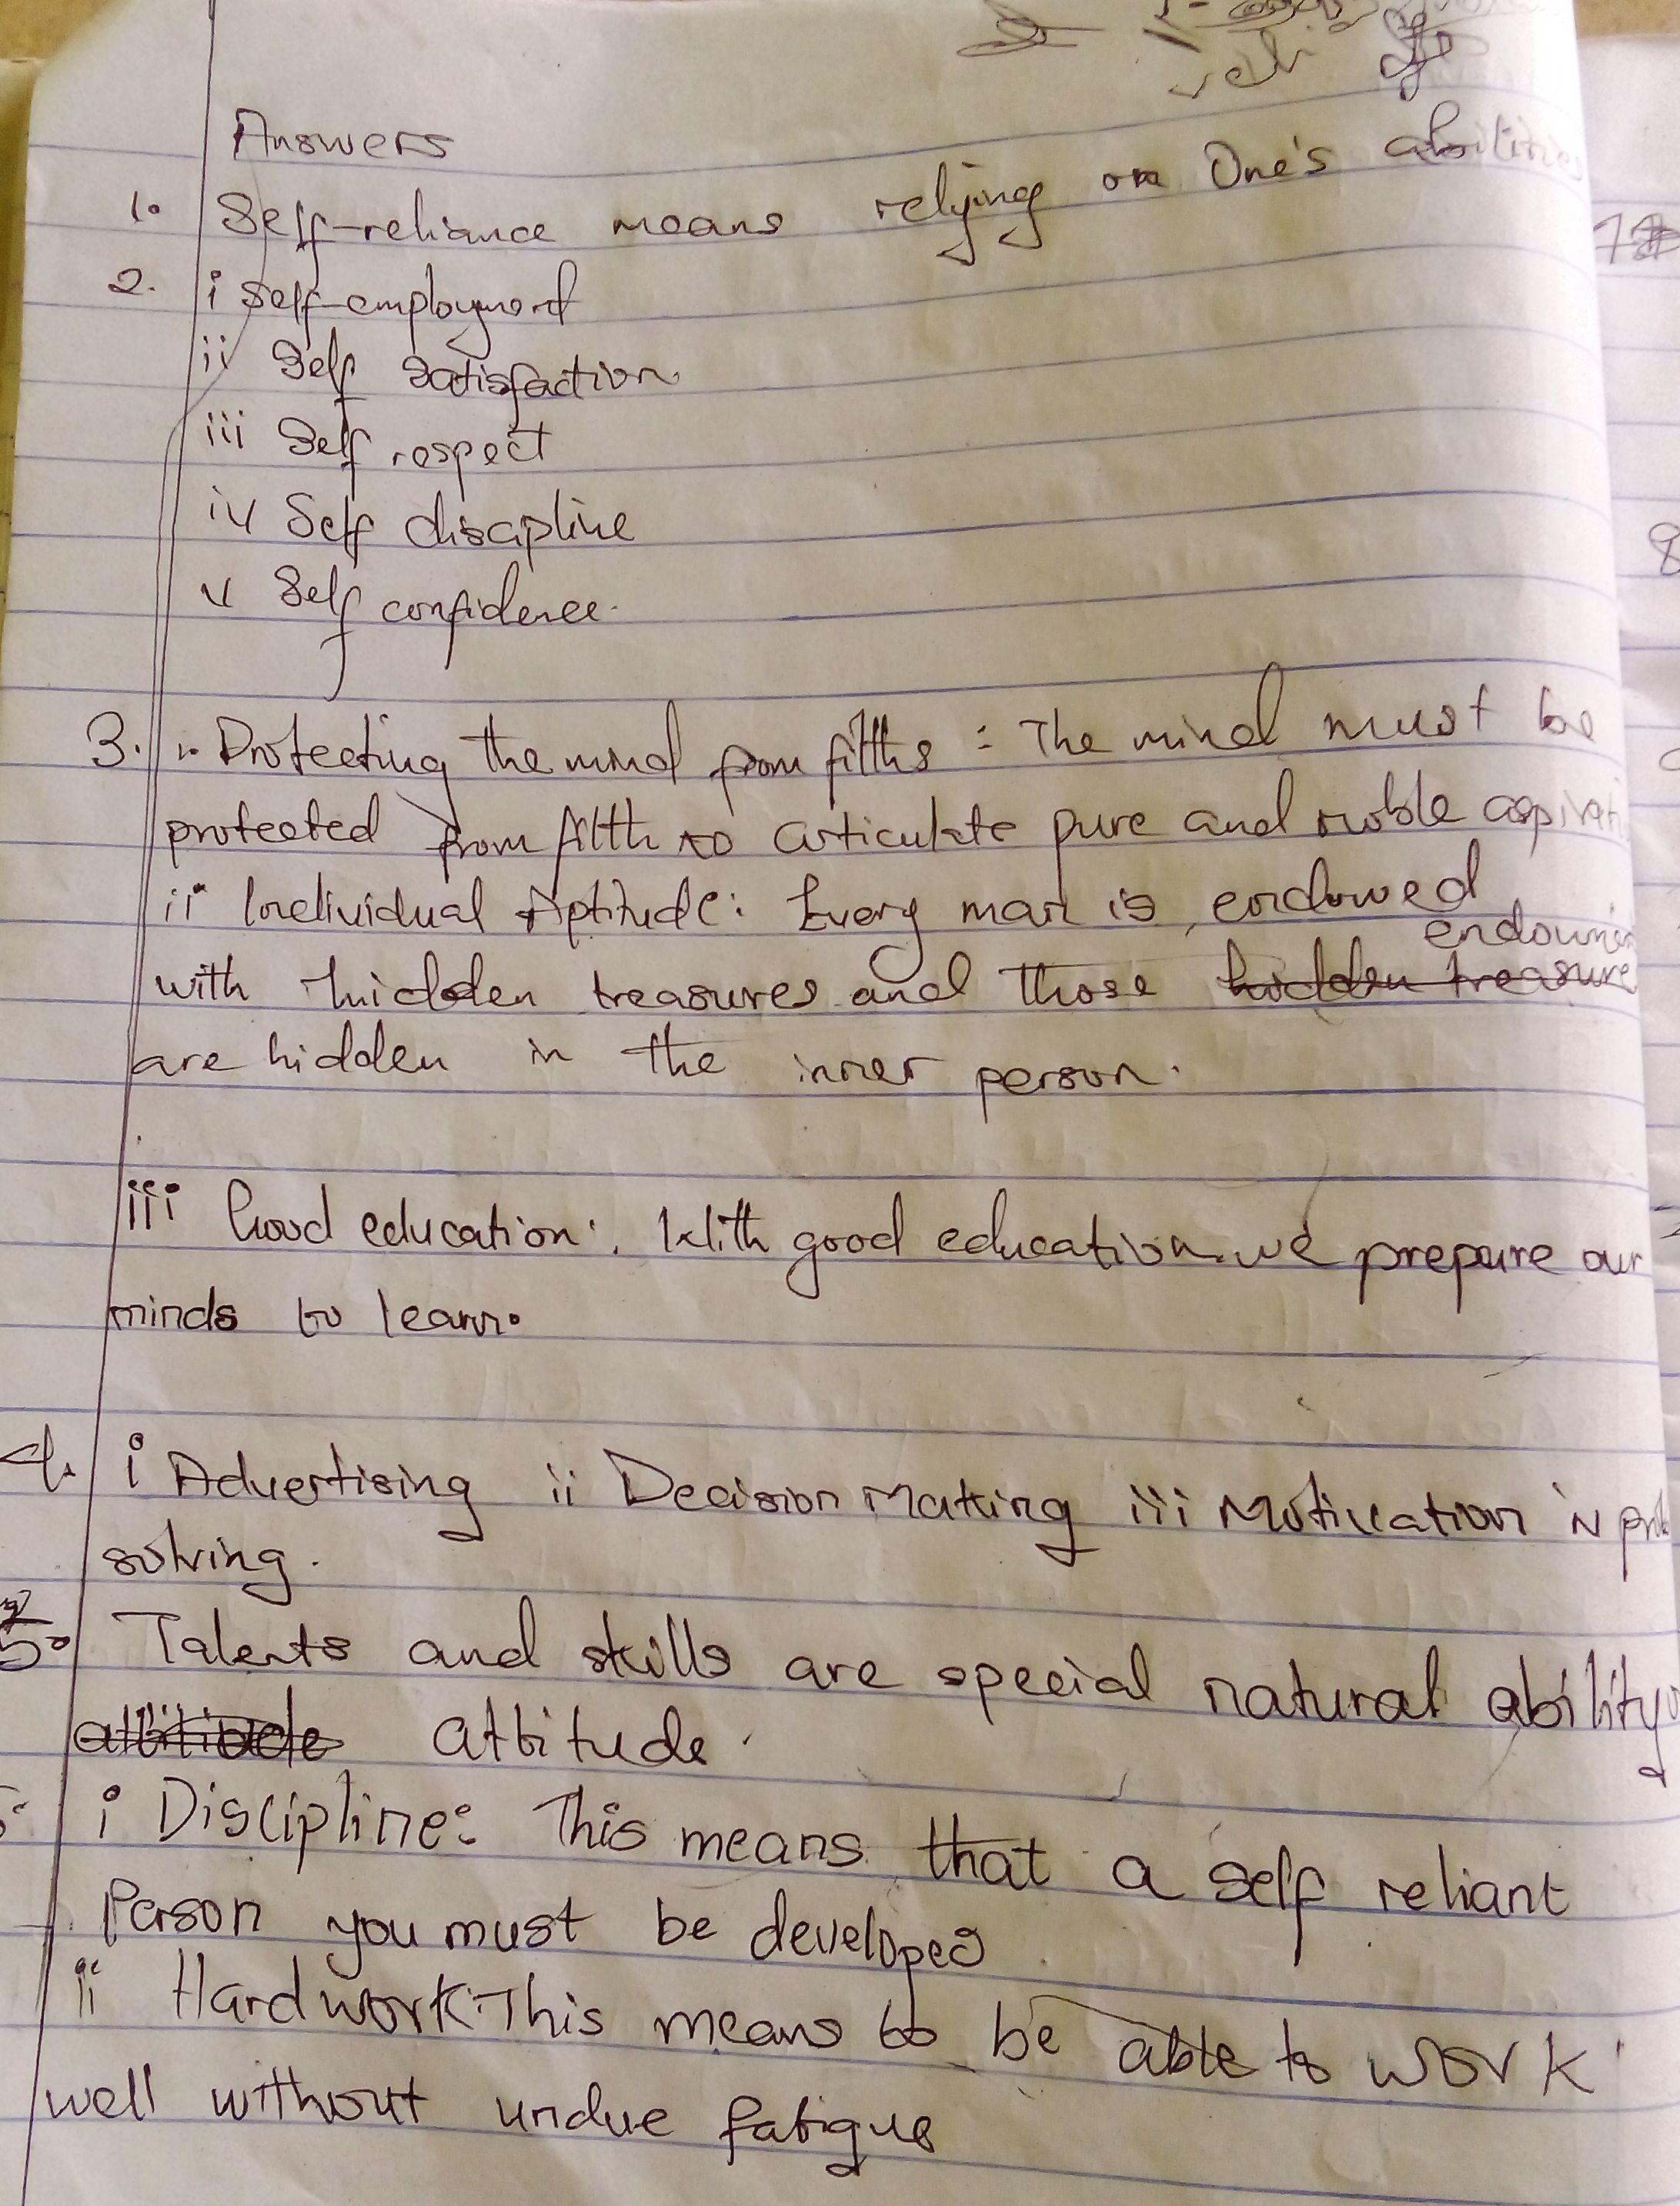 Answers
1. Self-reliance means relying on One's abilities
2. i Self-employment
ii Self satisfaction
iii Self respect
iv Self discipline
v Self confidence.
3. i. Protecting the mind from filths : The mind must be
protected from filth to articulate pure and noble
ii Individual Aptitude: Every man is endowed
endowmen
with hidden treasures and those hidden treasure
are hidden in the inner person.
iii Good education: With good education we prepare our
minds to learn.
4. i Advertising ii Decision Making iii Motivation iv
solving.
5. Talents and skills are special natural ability
attitude attitude.
i Discipline: This means that a self reliant
Person you must be developed
ii Hardwork: This means to be able to work
well without undue fatigue
7
8